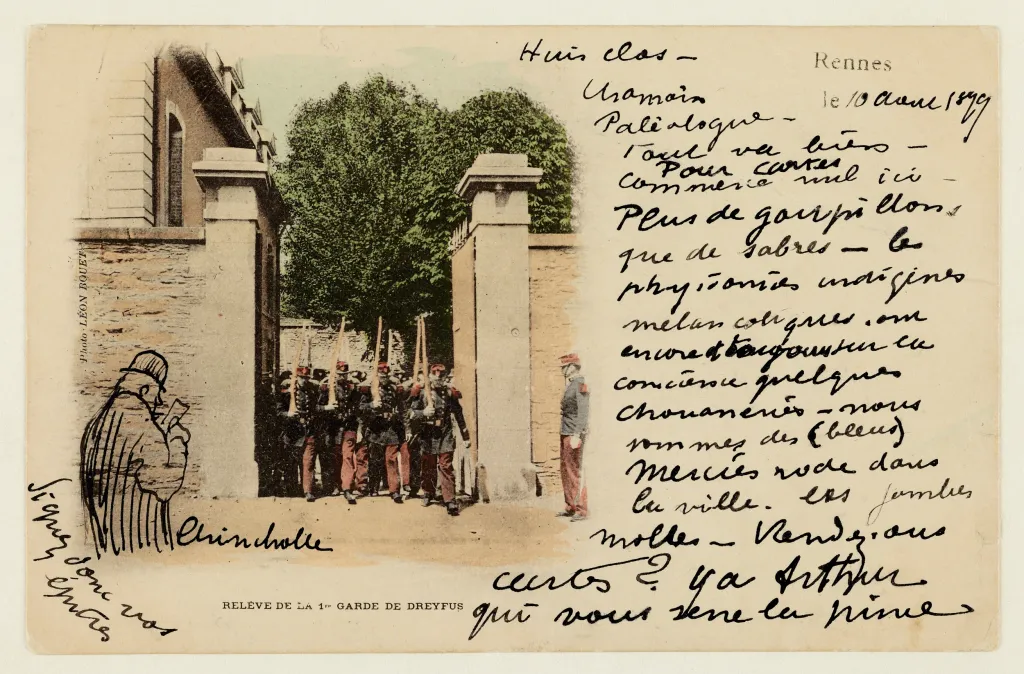 Rennes
le 10 aout 1899
Huis clos –
Chamoin
Paléologue –
Tout va bien –
Pour cartes
commerce nul ici –
Plus de goupillons
que de sabres – les
physionomies indigènes
mélancoliques ont
encore toujours sur la
conscience quelques
chouaneries – nous
sommes des (bleus)
Mercier rode dans
la ville. les jambes
molles – Rendez-vous
cartes ? ya Arthur
qui vous serre la
Photo LÉON BOUET
Chincholle
Signez donc vos
RELÈVE DE LA 1re GARDE DE DREYFUS